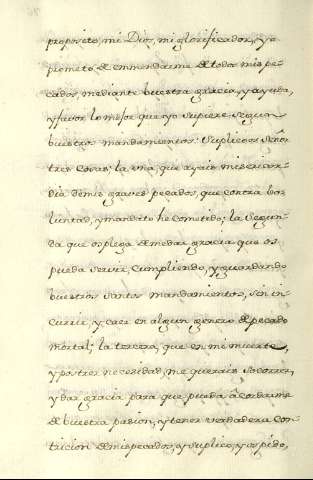 proposito, mi Dios, mi glorificador, y os
prometo de enmendarme de todos mis pe
cados, mediante buestra gracia, y ayuda,
y hacer lo mejor que yo supiere segun
buestros mandamientos: Suplicoos Señor
tres cosas; la una, que ayais misericor-
dia de mis graves pecados, que contra bos
luntad, y mandato he cometido; la segun-
da que os plega de me dar gracia que os
pueda servir, cumpliendo, y guardando
buestros santos mandamientos, sin in-
currir, y caer en algun genero de pecado
mortal; la tercera, que en mi muerte,
y postrer necesidad, me querais socorrer,
y dar gracia para que pueda acordarme
de buestra pasion, y tener verdadera con
tricion de mis pecados, y suplico, y os pido,